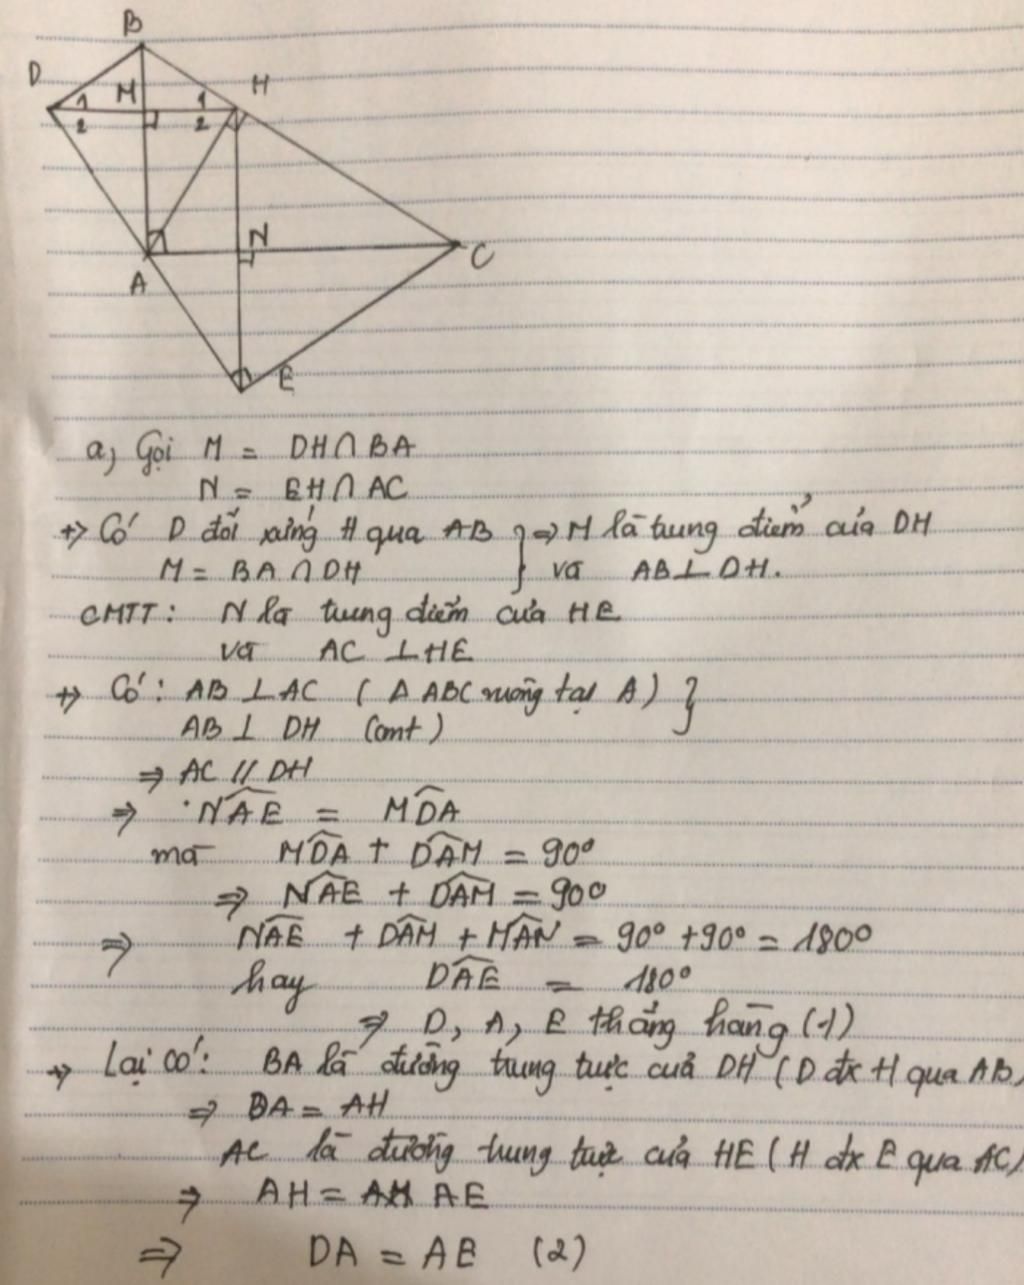 B
D
M
H
1
1
2
2
N
C
A
E
a, Gọi M = DH ∩ BA
N = EH ∩ AC
+> Có D đối xứng H qua AB } => M là trung điểm của DH
M = BA ∩ DH } và AB ⊥ DH.
CMTT: N là trung điểm của HE
và AC ⊥ HE
+> Có: AB ⊥ AC ( Δ ABC vuông tại A) }
AB ⊥ DH (cmt)
=> AC // DH
=> \widehat{NAE} = \widehat{MDA}
mà \widehat{MDA} + \widehat{DAM} = 90°
=> \widehat{NAE} + \widehat{DAM} = 90°
=> \widehat{NAE} + \widehat{DAM} + \widehat{MAN} = 90° + 90° = 180°
hay \widehat{DAE} = 180°
=> D, A, E thẳng hàng (1)
+> Lại có: BA là đường trung trực của DH (D đx H qua AB)
=> DA = AH
AC là đường trung trực của HE ( H đx E qua AC)
=> AH = AE
=> DA = AE (2)